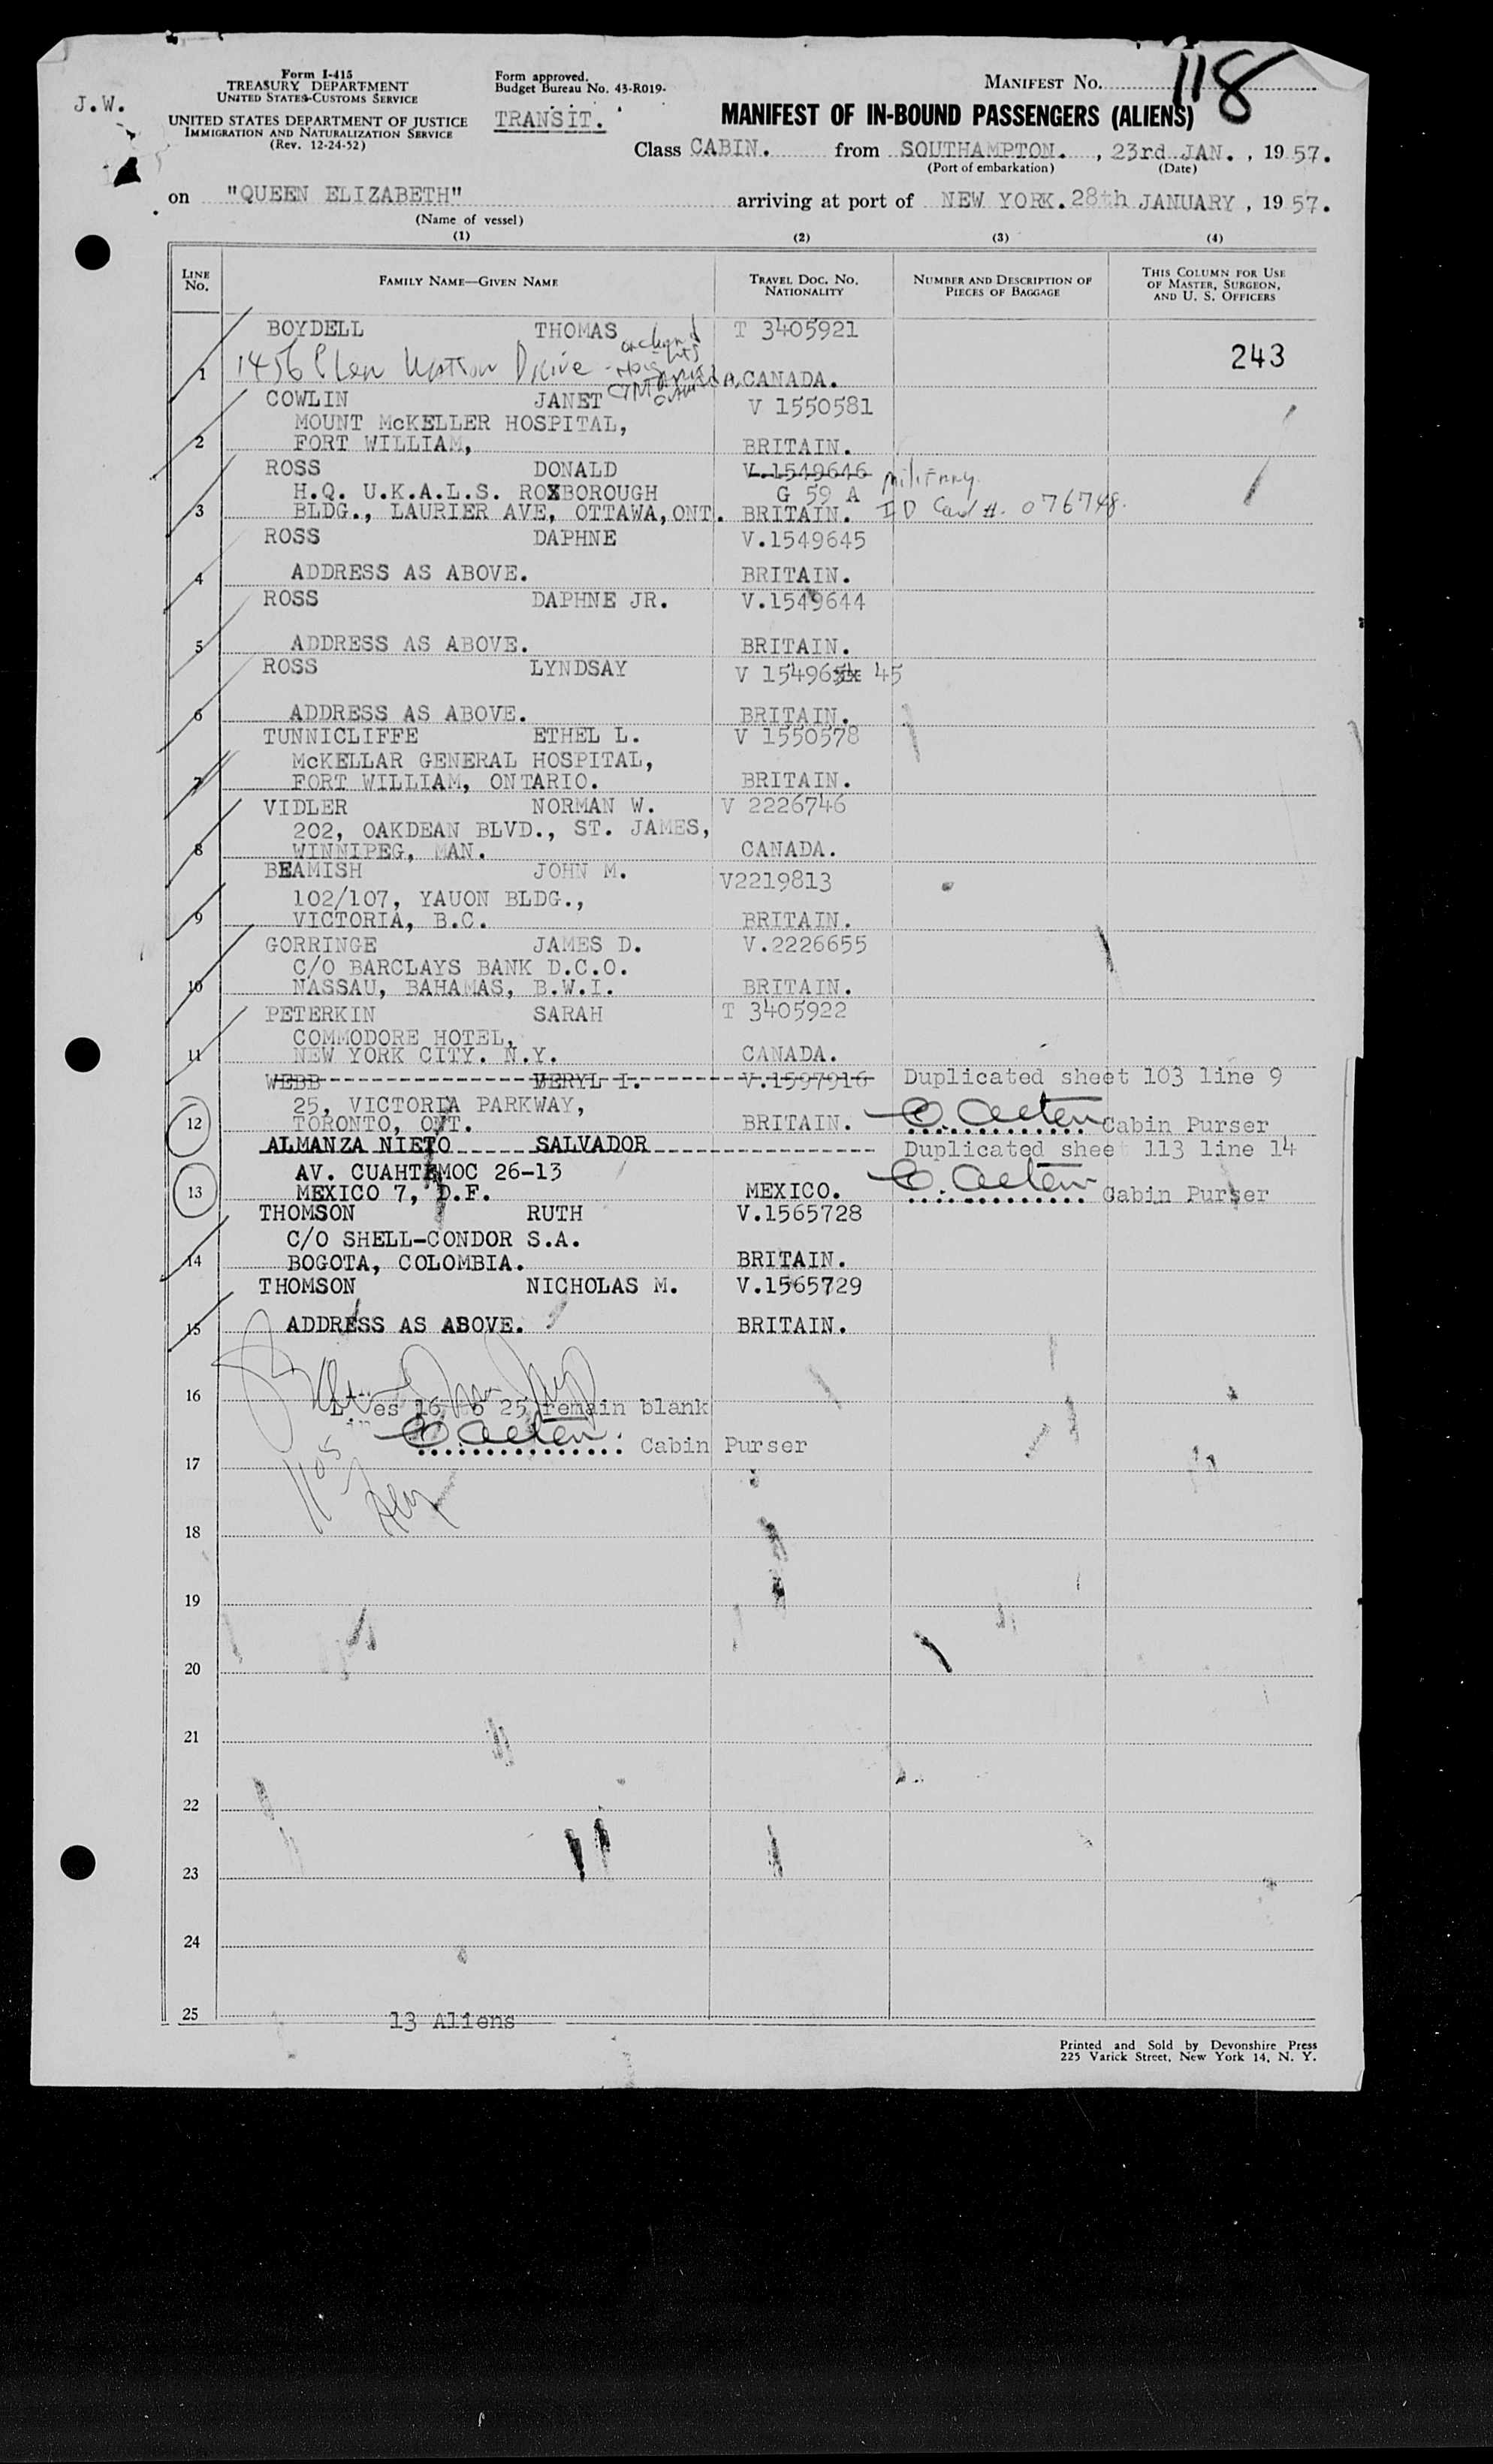 J.W.
Form I-415
TREASURY DEPARTMENT
UNITED STATES CUSTOMS SERVICE
UNITED STATES DEPARTMENT OF JUSTICE
IMMIGRATION AND NATURALIZATION SERVICE
(Rev. 12-24-52)
Form approved.
Budget Bureau No. 43-R019-
TRANSIT.
MANIFEST No. 118
MANIFEST OF IN-BOUND PASSENGERS (ALIENS)
Class CABIN. from SOUTHAMPTON. , 23rd JAN. , 19 57.
(Port of embarkation) (Date)
on "QUEEN ELIZABETH" arriving at port of NEW YORK. 28th JANUARY , 19 57.
(Name of vessel)
(1) (2) (3) (4)
LINE No. FAMILY NAME—GIVEN NAME TRAVEL DOC. NO. NATIONALITY NUMBER AND DESCRIPTION OF PIECES OF BAGGAGE THIS COLUMN FOR USE OF MASTER, SURGEON, AND U. S. OFFICERS
BOYDELL THOMAS T 3405921
243
1 1456 Drive CANADA.
COWLIN JANET V 1550581
MOUNT McKELLER HOSPITAL,
2 FORT WILLIAM, BRITAIN.
ROSS DONALD V.1549646 military
H.Q. U.K.A.L.S. ROXBOROUGH G 59 A
3 BLDG., LAURIER AVE, OTTAWA, ONT. BRITAIN. ID Card #. 076748.
ROSS DAPHNE V.1549645
4 ADDRESS AS ABOVE. BRITAIN.
ROSS DAPHNE JR. V.1549644
5 ADDRESS AS ABOVE. BRITAIN.
ROSS LYNDSAY V 154965 45
6 ADDRESS AS ABOVE. BRITAIN.
TUNNICLIFFE ETHEL L. V 1550578
McKELLAR GENERAL HOSPITAL,
7 FORT WILLIAM, ONTARIO. BRITAIN.
VIDLER NORMAN W. V 2226746
202, OAKDEAN BLVD., ST. JAMES,
8 WINNIPEG, MAN. CANADA.
BEAMISH JOHN M. V2219813
102/107, YAUON BLDG.,
9 VICTORIA, B.C. BRITAIN.
GORRINGE JAMES D. V.2226655
C/O BARCLAYS BANK D.C.O.
10 NASSAU, BAHAMAS, B.W.I. BRITAIN.
PETERKIN SARAH T 3405922
COMMODORE HOTEL,
11 NEW YORK CITY. N.Y. CANADA.
WEBB BERYL I. V.1597916 Duplicated sheet 103 line 9
25, VICTORIA PARKWAY,
12 TORONTO, ONT. BRITAIN. Cabin Purser
ALMANZA NIETO SALVADOR Duplicated sheet 113 line 14
AV. CUAHTEMOC 26-13
13 MEXICO 7, D.F. MEXICO. Cabin Purser
THOMSON RUTH V.1565728
C/O SHELL-CONDOR S.A.
14 BOGOTA, COLOMBIA. BRITAIN.
THOMSON NICHOLAS M. V.1565729
15 ADDRESS AS ABOVE. BRITAIN.
16
Lines 16 to 25 remain blank
Cabin Purser
17
18
19
20
21
22
23
24
25 13 Aliens
Printed and Sold by Devonshire Press
225 Varick Street, New York 14, N. Y.